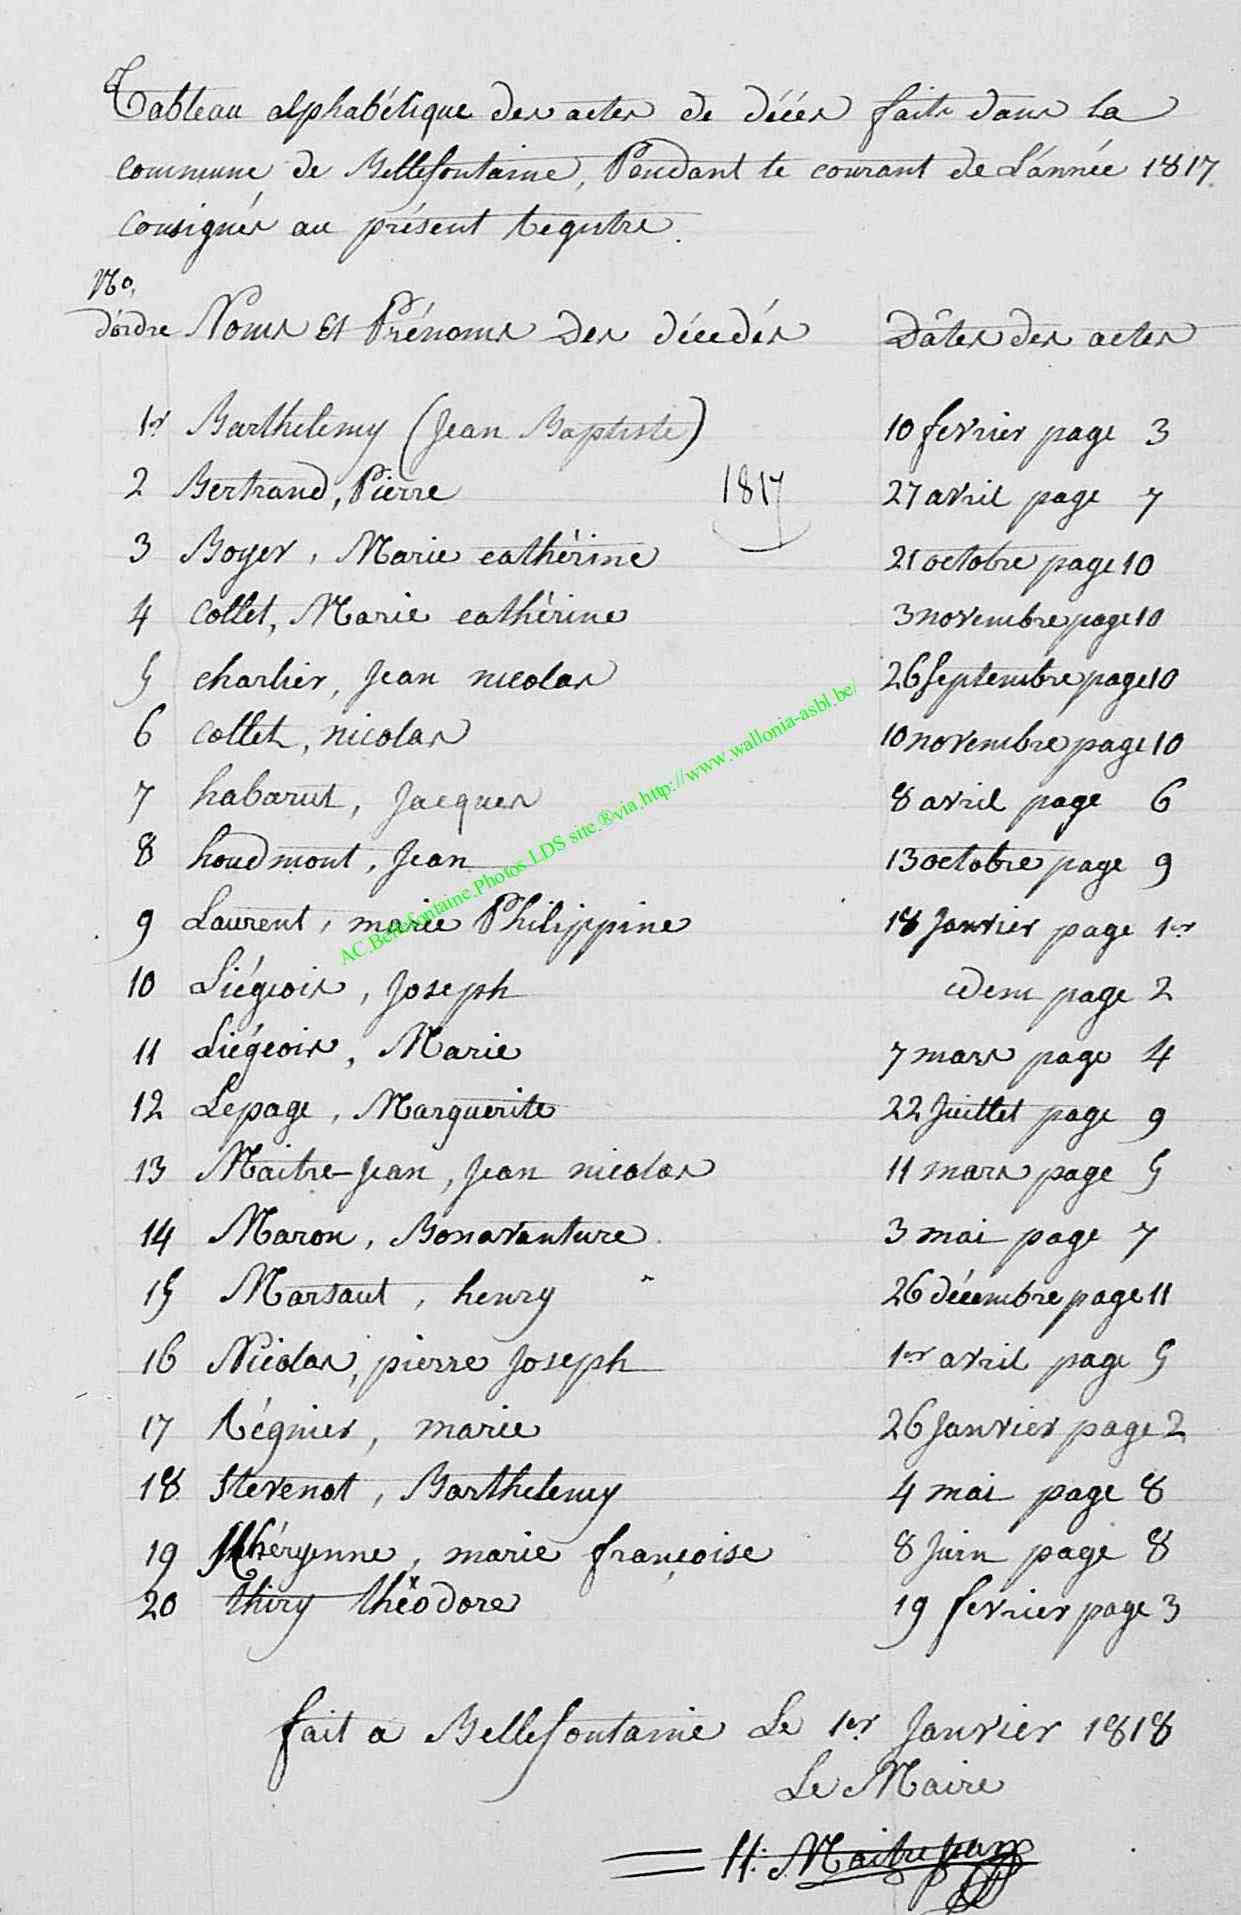 Tableau alphabétique des actes de décés faits dans la
commune de Bellefontaine, Pendant le courant de L'année 1817.
Consignés au présent Registre.
No,
d'ordre Noms Et Prénoms Des décédés Dâtes des actes
1er Barthelemy (Jean Baptiste) 10 fevrier page 3
2 Bertrand, Pierre 1817 27 avril page 7
3 Boyer, Marie cathérine 21 octobre page 10
4 Collet, Marie cathérine 3 novembre page 10
5 charlier, Jean nicolas 26 Septembre page 10
6 Collet, nicolas 10 novembre page 10
7 habarut, Jacques 8 avril page 6
8 houdmont, Jean 13 octobre page 9
9 Laurent, marie Philippine 18 Janvier page 1er
10 Liégeois, Joseph idem page 2
11 Liégeois, Marie 7 mars page 4
12 Lepage, Marguerite 22 Juillet page 9
13 Maitre-Jean, Jean nicolas 11 mars page 5
14 Maron, Bonavanture 3 mai page 7
15 Marsaut, henry 26 décembre page 11
16 Nicolas, pierre Joseph 1er avril page 5
17 Régnier, marie 26 Janvier page 2
18 Stevenot, Barthelemy 4 mai page 8
19 marie françoise 8 Juin page 8
20 thiry théodore 19 fevrier page 3
fait a Bellefontaine Le 1er Janvier 1818
Le Maire
H: Maitrejean
AC.Bellefontaine.Photos.LDS site.®via.http://www.wallonia-asbl.be/